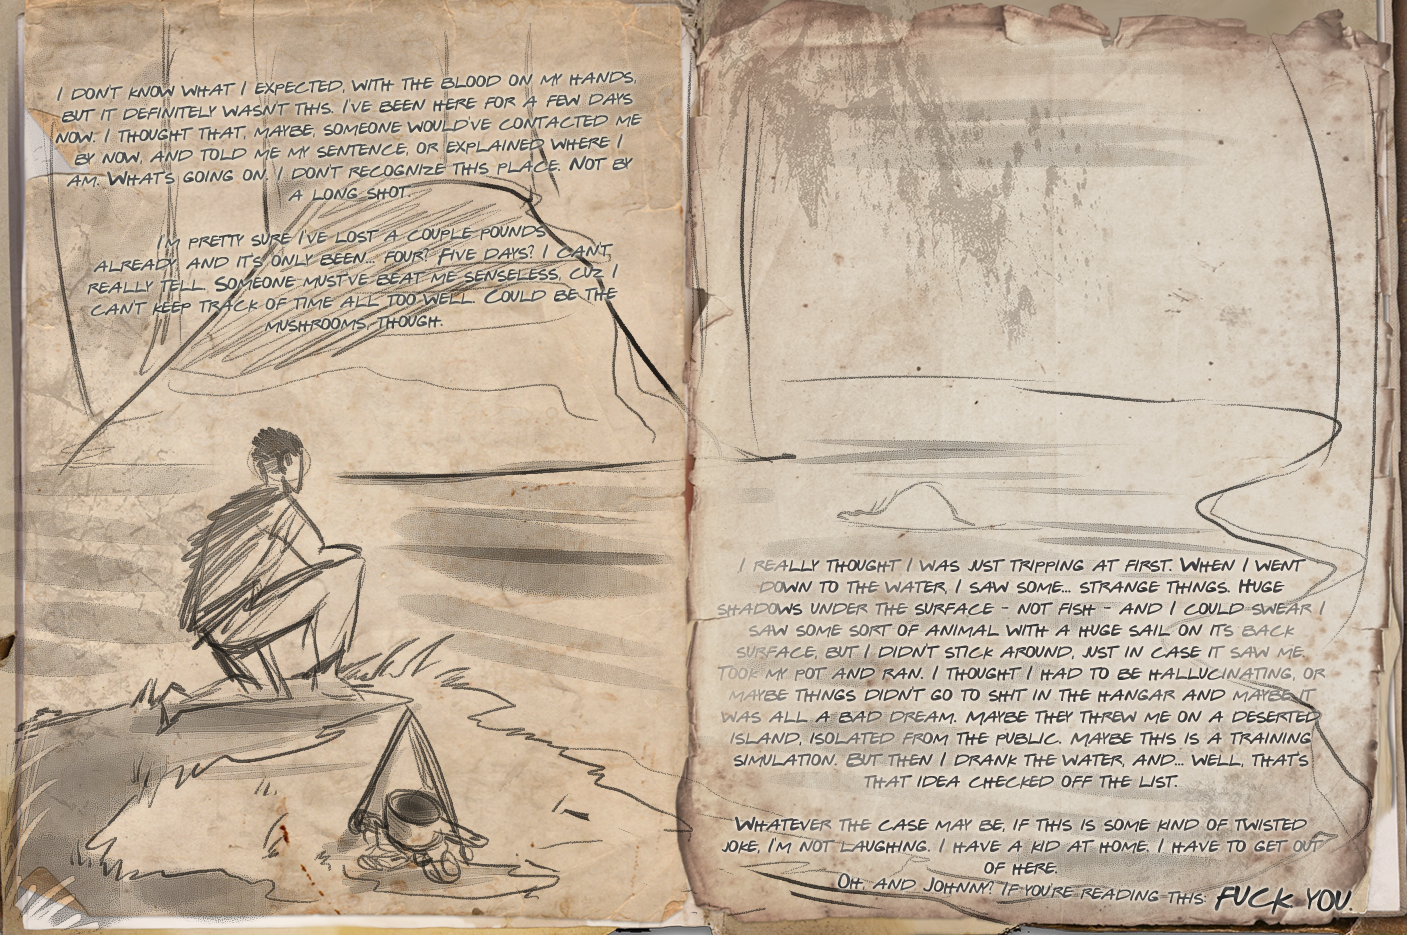 I DON'T KNOW WHAT I EXPECTED, WITH THE BLOOD ON MY HANDS,
BUT IT DEFINITELY WASN'T THIS. I'VE BEEN HERE FOR A FEW DAYS
NOW. I THOUGHT THAT, MAYBE, SOMEONE WOULD'VE CONTACTED ME
BY NOW, AND TOLD ME MY SENTENCE, OR EXPLAINED WHERE I
AM. WHAT'S GOING ON. I DON'T RECOGNIZE THIS PLACE. NOT BY
A LONG SHOT.
I'M PRETTY SURE I'VE LOST A COUPLE POUNDS
ALREADY, AND IT'S ONLY BEEN... FOUR? FIVE DAYS? I CAN'T,
REALLY TELL. SOMEONE MUST'VE BEAT ME SENSELESS, CUZ I
CAN'T KEEP TRACK OF TIME ALL TOO WELL. COULD BE THE
MUSHROOMS, THOUGH.
I REALLY THOUGHT I WAS JUST TRIPPING AT FIRST. WHEN I WENT
DOWN TO THE WATER, I SAW SOME... STRANGE THINGS. HUGE
SHADOWS UNDER THE SURFACE - NOT FISH - AND I COULD SWEAR I
SAW SOME SORT OF ANIMAL WITH A HUGE SAIL ON ITS BACK
SURFACE, BUT I DIDN'T STICK AROUND, JUST IN CASE IT SAW ME.
TOOK MY POT AND RAN. I THOUGHT I HAD TO BE HALLUCINATING, OR
MAYBE THINGS DIDN'T GO TO SHIT IN THE HANGAR AND MAYBE IT
WAS ALL A BAD DREAM. MAYBE THEY THREW ME ON A DESERTED
ISLAND, ISOLATED FROM THE PUBLIC. MAYBE THIS IS A TRAINING
SIMULATION. BUT THEN I DRANK THE WATER, AND... WELL, THAT'S
THAT IDEA CHECKED OFF THE LIST.
WHATEVER THE CASE MAY BE, IF THIS IS SOME KIND OF TWISTED
JOKE, I'M NOT LAUGHING. I HAVE A KID AT HOME. I HAVE TO GET OUT
OF HERE.
OH, AND JOHNNY? IF YOU'RE READING THIS: FUCK YOU.